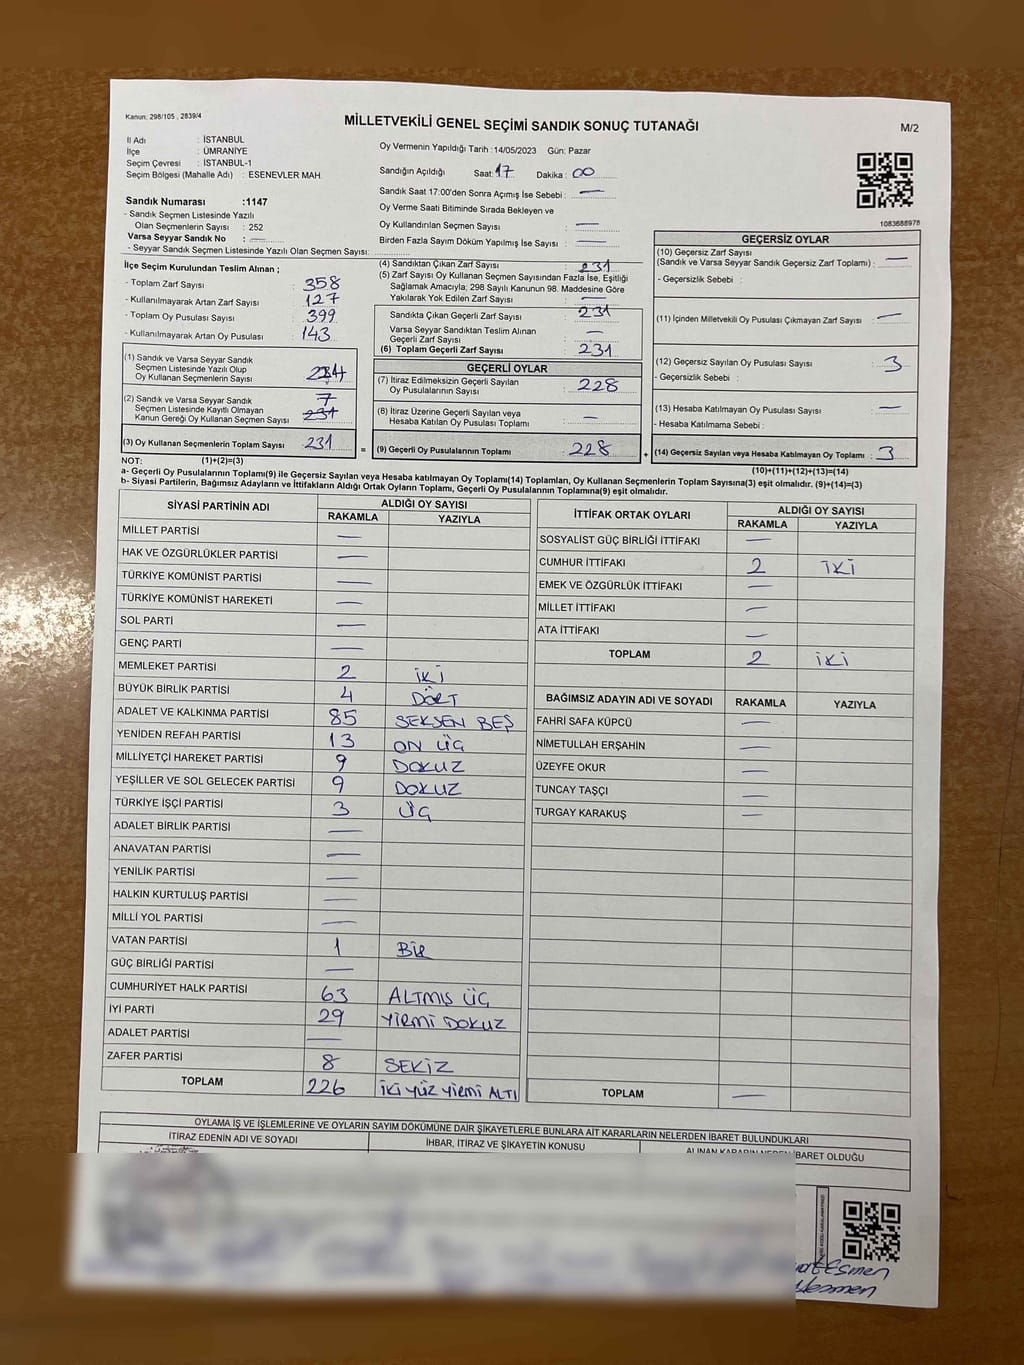 Kanun: 298/105 , 2839/4
MİLLETVEKİLİ GENEL SEÇİMİ SANDIK SONUÇ TUTANAĞI
M/2
İl Adı : İSTANBUL
İlçe : ÜMRANİYE
Seçim Çevresi : İSTANBUL-1
Seçim Bölgesi (Mahalle Adı) : ESENEVLER MAH.
Sandık Numarası :1147
- Sandık Seçmen Listesinde Yazılı
Olan Seçmenlerin Sayısı : 252
Varsa Seyyar Sandık No : —
- Seyyar Sandık Seçmen Listesinde Yazılı Olan Seçmen Sayısı:
Oy Vermenin Yapıldığı Tarih :14/05/2023 Gün: Pazar
Sandığın Açıldığı Saat: 17 Dakika : 00
Sandık Saat 17:00'den Sonra Açımış İse Sebebi : —
Oy Verme Saati Bitiminde Sırada Bekleyen ve
Oy Kullandırılan Seçmen Sayısı : —
Birden Fazla Sayım Döküm Yapılmış İse Sayısı : —
1083688978
İlçe Seçim Kurulundan Teslim Alınan ;
- Toplam Zarf Sayısı : 358
- Kullanılmayarak Artan Zarf Sayısı : 127
- Toplam Oy Pusulası Sayısı : 399
- Kullanılmayarak Artan Oy Pusulası : 143
(1) Sandık ve Varsa Seyyar Sandık
Seçmen Listesinde Yazılı Olup
Oy Kullanan Seçmenlerin Sayısı
(2) Sandık ve Varsa Seyyar Sandık 7
Seçmen Listesinde Kayıtlı Olmayan
Kanun Gereği Oy Kullanan Seçmen Sayısı : 231
(3) Oy Kullanan Seçmenlerin Toplam Sayısı : 231
(4) Sandıktan Çıkan Zarf Sayısı : 231
(5) Zarf Sayısı Oy Kullanan Seçmen Sayısından Fazla İse, Eşitliği
Sağlamak Amacıyla, 298 Sayılı Kanunun 98. Maddesine Göre
Yakılarak Yok Edilen Zarf Sayısı : —
Sandıkta Çıkan Geçerli Zarf Sayısı : 231
Varsa Seyyar Sandıktan Teslim Alınan
Geçerli Zarf Sayısı : —
(6) Toplam Geçerli Zarf Sayısı : 231
GEÇERLİ OYLAR
(7) İtiraz Edilmeksizin Geçerli Sayılan
Oy Pusulalarının Sayısı : 228
(8) İtiraz Üzerine Geçerli Sayılan veya
Hesaba Katılan Oy Pusulası Toplamı : —
= (9) Geçerli Oy Pusulalarının Toplamı : 228 +
GEÇERSİZ OYLAR
(10) Geçersiz Zarf Sayısı
(Sandık ve Varsa Seyyar Sandık Geçersiz Zarf Toplamı) : —
- Geçersizlik Sebebi :
(11) İçinden Milletvekili Oy Pusulası Çıkmayan Zarf Sayısı : —
(12) Geçersiz Sayılan Oy Pusulası Sayısı : 3
- Geçersizlik Sebebi :
(13) Hesaba Katılmayan Oy Pusulası Sayısı : —
- Hesaba Katılmama Sebebi :
(14) Geçersiz Sayılan veya Hesaba Katılmayan Oy Toplamı : 3
NOT: (1)+(2)=(3)
(10)+(11)+(12)+(13)=(14)
a- Geçerli Oy Pusulalarının Toplamı(9) ile Geçersiz Sayılan veya Hesaba katılmayan Oy Toplamı(14) Toplamları, Oy Kullanan Seçmenlerin Toplam Sayısına(3) eşit olmalıdır. (9)+(14)=(3)
b- Siyasi Partilerin, Bağımsız Adayların ve İttifakların Aldığı Ortak Oyların Toplamı, Geçerli Oy Pusulalarının Toplamına(9) eşit olmalıdır.
SİYASİ PARTİNİN ADI ALDIĞI OY SAYISI
RAKAMLA YAZIYLA
MİLLET PARTİSİ —
HAK VE ÖZGÜRLÜKLER PARTİSİ —
TÜRKİYE KOMÜNİST PARTİSİ —
TÜRKİYE KOMÜNİST HAREKETİ —
SOL PARTİ —
GENÇ PARTİ —
MEMLEKET PARTİSİ 2 İKİ
BÜYÜK BİRLİK PARTİSİ 4 DÖRT
ADALET VE KALKINMA PARTİSİ 85 SEKSEN BEŞ
YENİDEN REFAH PARTİSİ 13 ON ÜÇ
MİLLİYETÇİ HAREKET PARTİSİ 9 DOKUZ
YEŞİLLER VE SOL GELECEK PARTİSİ 9 DOKUZ
TÜRKİYE İŞÇİ PARTİSİ 3 ÜÇ
ADALET BİRLİK PARTİSİ —
ANAVATAN PARTİSİ —
YENİLİK PARTİSİ —
HALKIN KURTULUŞ PARTİSİ —
MİLLİ YOL PARTİSİ —
VATAN PARTİSİ 1 BİR
GÜÇ BİRLİĞİ PARTİSİ —
CUMHURİYET HALK PARTİSİ 63 ALTMIŞ ÜÇ
İYİ PARTİ 29 YİRMİ DOKUZ
ADALET PARTİSİ —
ZAFER PARTİSİ 8 SEKİZ
TOPLAM 226 İKİ YÜZ YİRMİ ALTI
İTTİFAK ORTAK OYLARI ALDIĞI OY SAYISI
RAKAMLA YAZIYLA
SOSYALİST GÜÇ BİRLİĞİ İTTİFAKI —
CUMHUR İTTİFAKI 2 İKİ
EMEK VE ÖZGÜRLÜK İTTİFAKI —
MİLLET İTTİFAKI —
ATA İTTİFAKI —
TOPLAM 2 İKİ
BAĞIMSIZ ADAYIN ADI VE SOYADI RAKAMLA YAZIYLA
FAHRİ SAFA KÜPCÜ —
NİMETULLAH ERŞAHİN —
ÜZEYFE OKUR —
TUNCAY TAŞÇI —
TURGAY KARAKUŞ —
TOPLAM —
OYLAMA İŞ VE İŞLEMLERİNE VE OYLARIN SAYIM DÖKÜMÜNE DAİR ŞİKAYETLERLE BUNLARA AİT KARARLARIN NELERDEN İBARET BULUNDUKLARI
İTİRAZ EDENİN ADI VE SOYADI İHBAR, İTİRAZ VE ŞİKAYETİN KONUSU ALINAN KARARIN NEDEN İBARET OLDUĞU